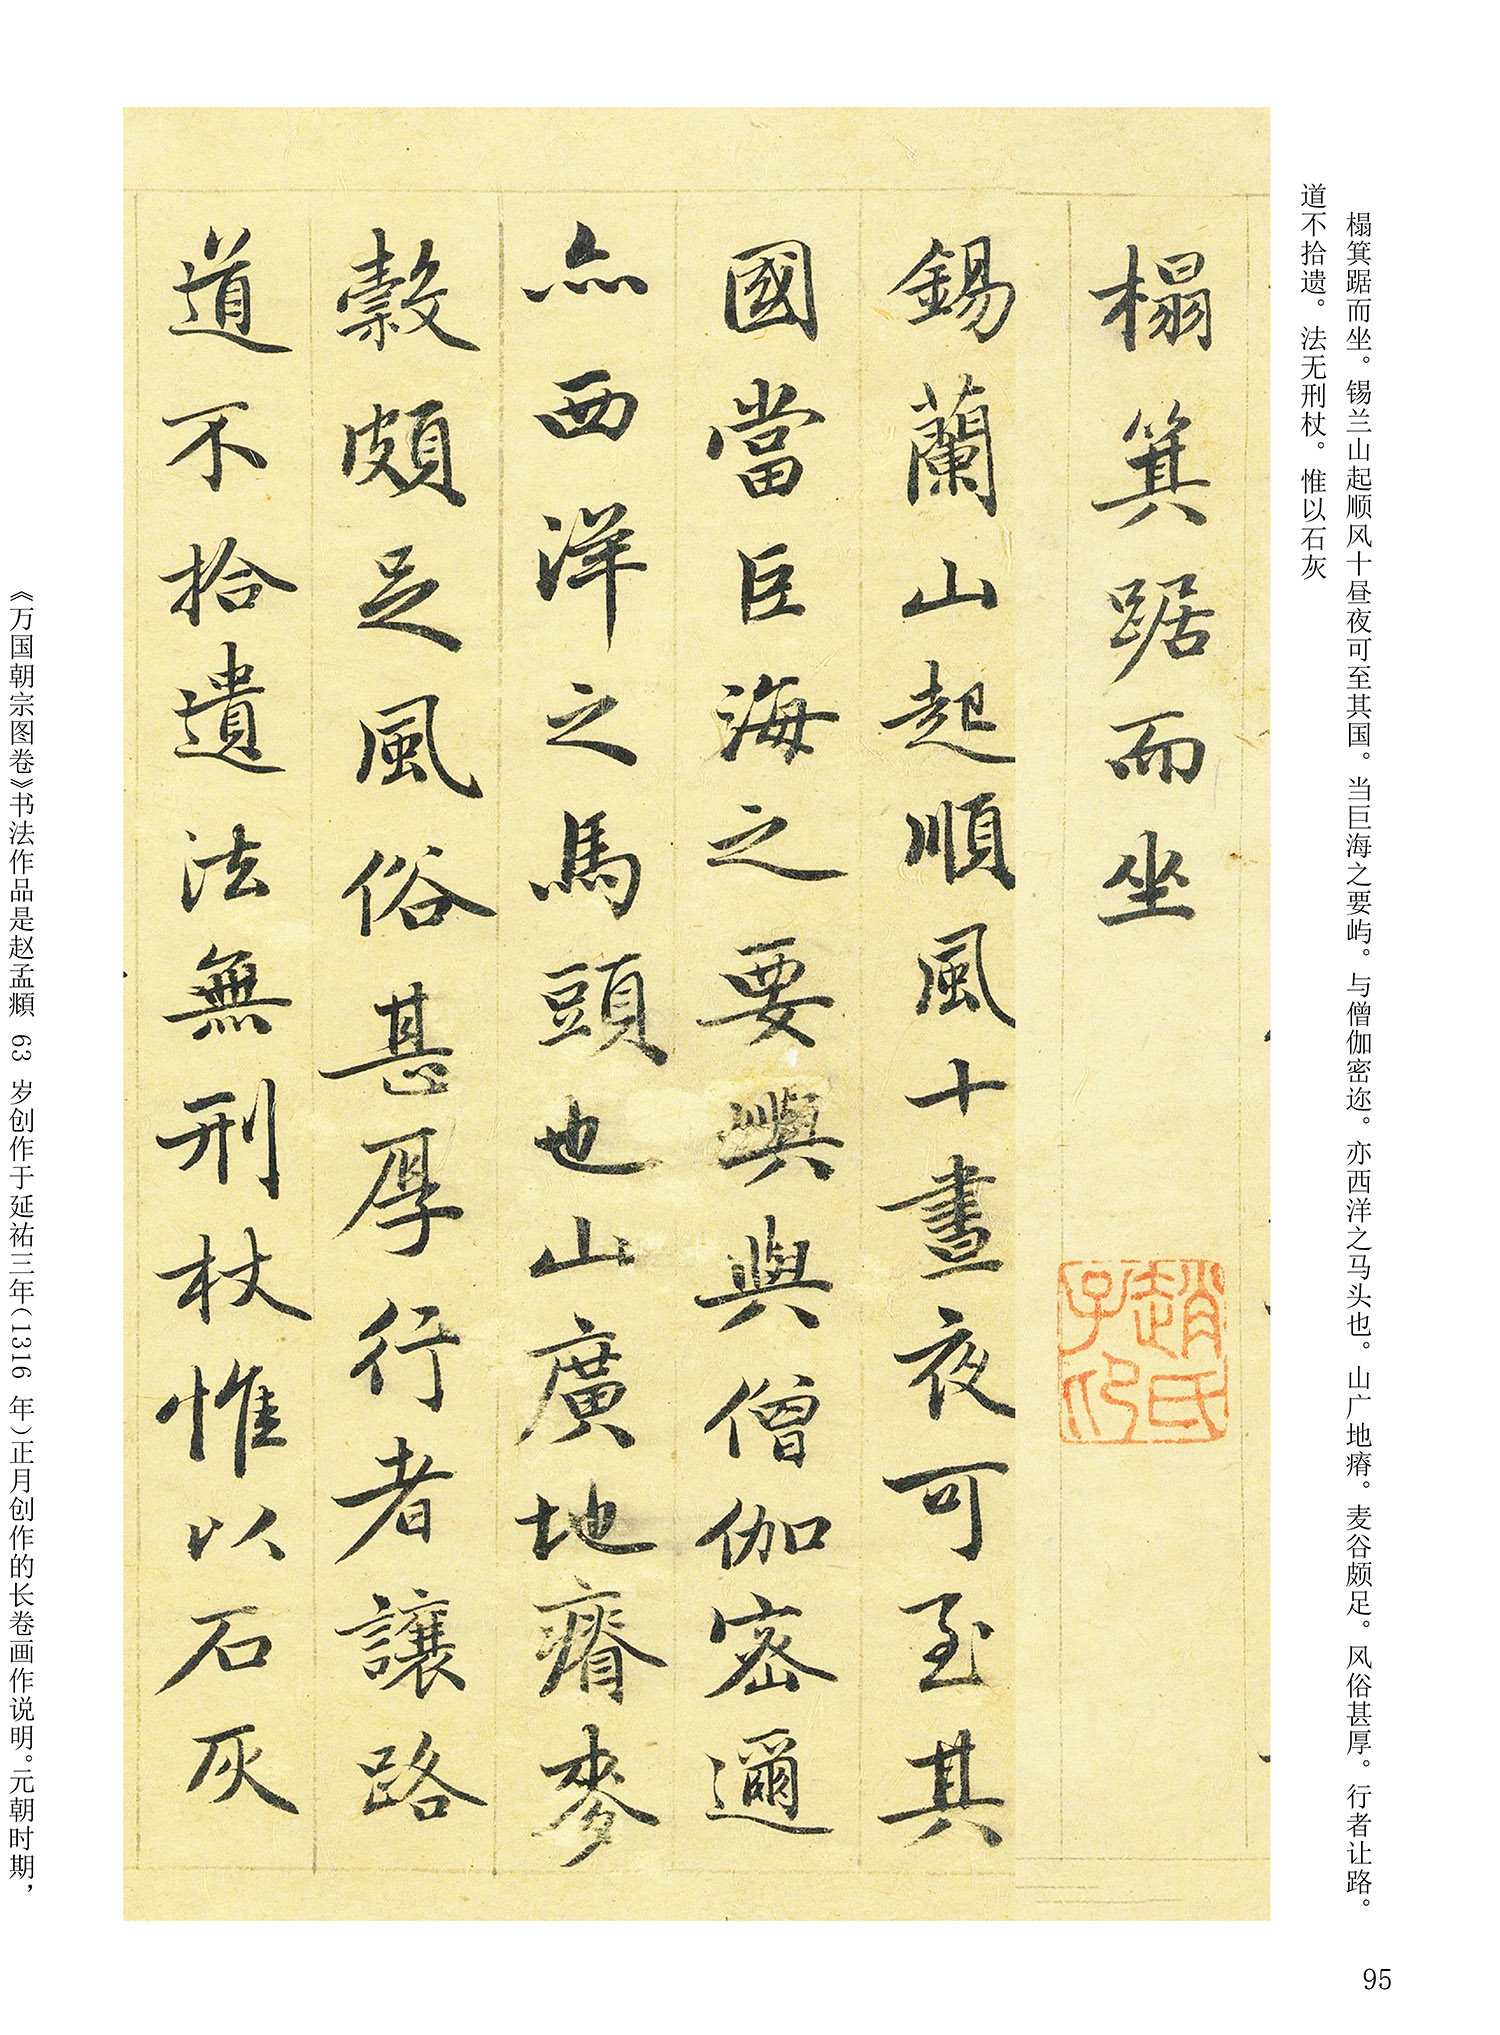 榻箕踞而坐。锡兰山起顺风十昼夜可至其国。当巨海之要屿。与僧伽密迩。亦西洋之马头也。山广地瘠。麦谷颇足。风俗甚厚。行者让路。
道不拾遗。法无刑杖。惟以石灰
榻箕踞而坐
趙氏子印
錫蘭山起順風十晝夜可至其
國當巨海之要嶼與僧伽密邇
亦西洋之馬頭也山廣地瘠麥
穀頗足風俗甚厚行者讓路
道不拾遺法無刑杖惟以石灰
《万国朝宗图卷》书法作品是赵孟頫 63 岁创作于延祐三年(1316 年)正月创作的长卷画作说明。元朝时期，
95